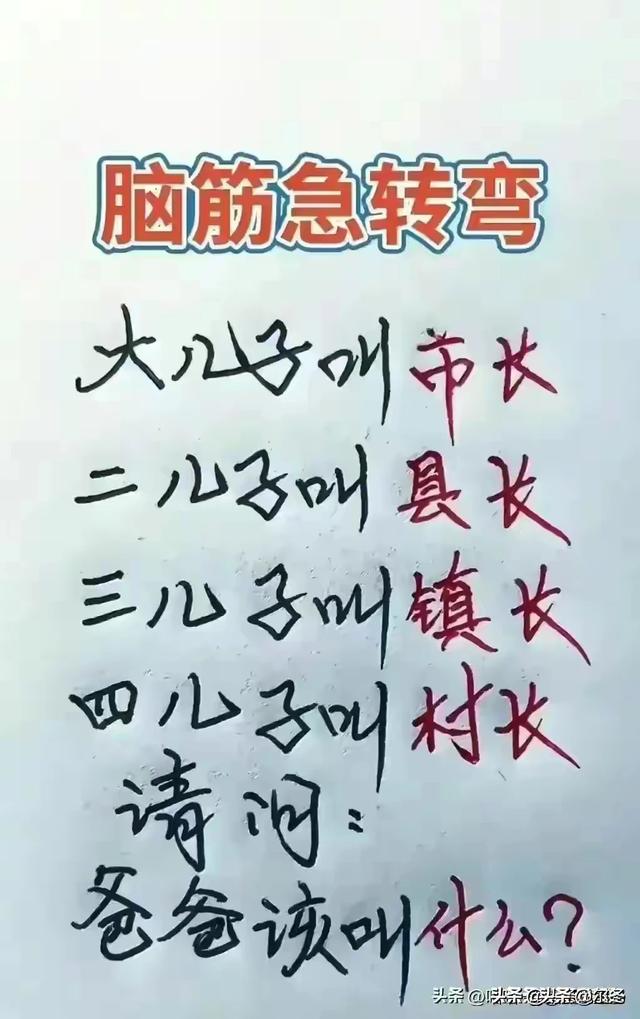 脑筋急转弯
大儿子叫市长
二儿子叫县长
三儿子叫镇长
四儿子叫村长
请问：
爸爸该叫什么？
头条
头条
头条